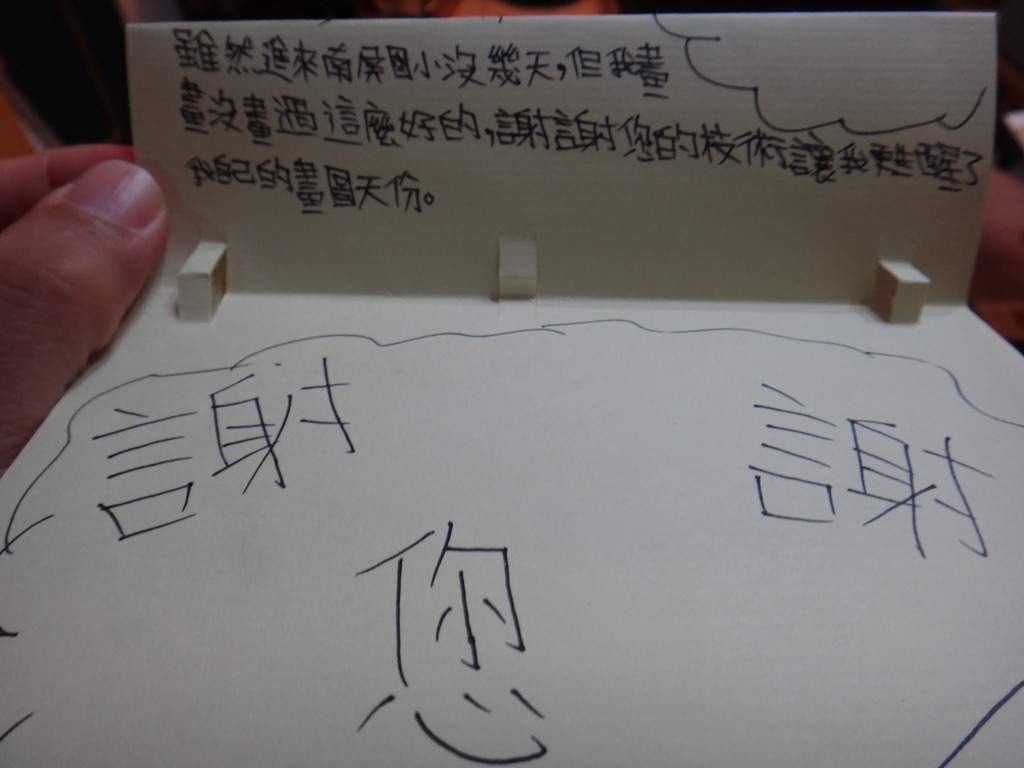 雖然進來南屏國小沒幾天，但我畫
畫沒畫過這麼好的，謝謝您的技術讓我喚醒了
我的畫圖天份。
謝 謝
您